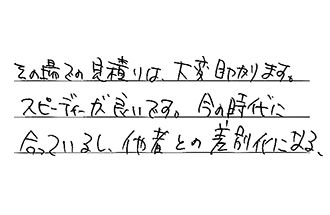 その場での見積りは、大変助かります。
スピーディーが良いです。今の時代に
合っているし、他者との差別化になる、